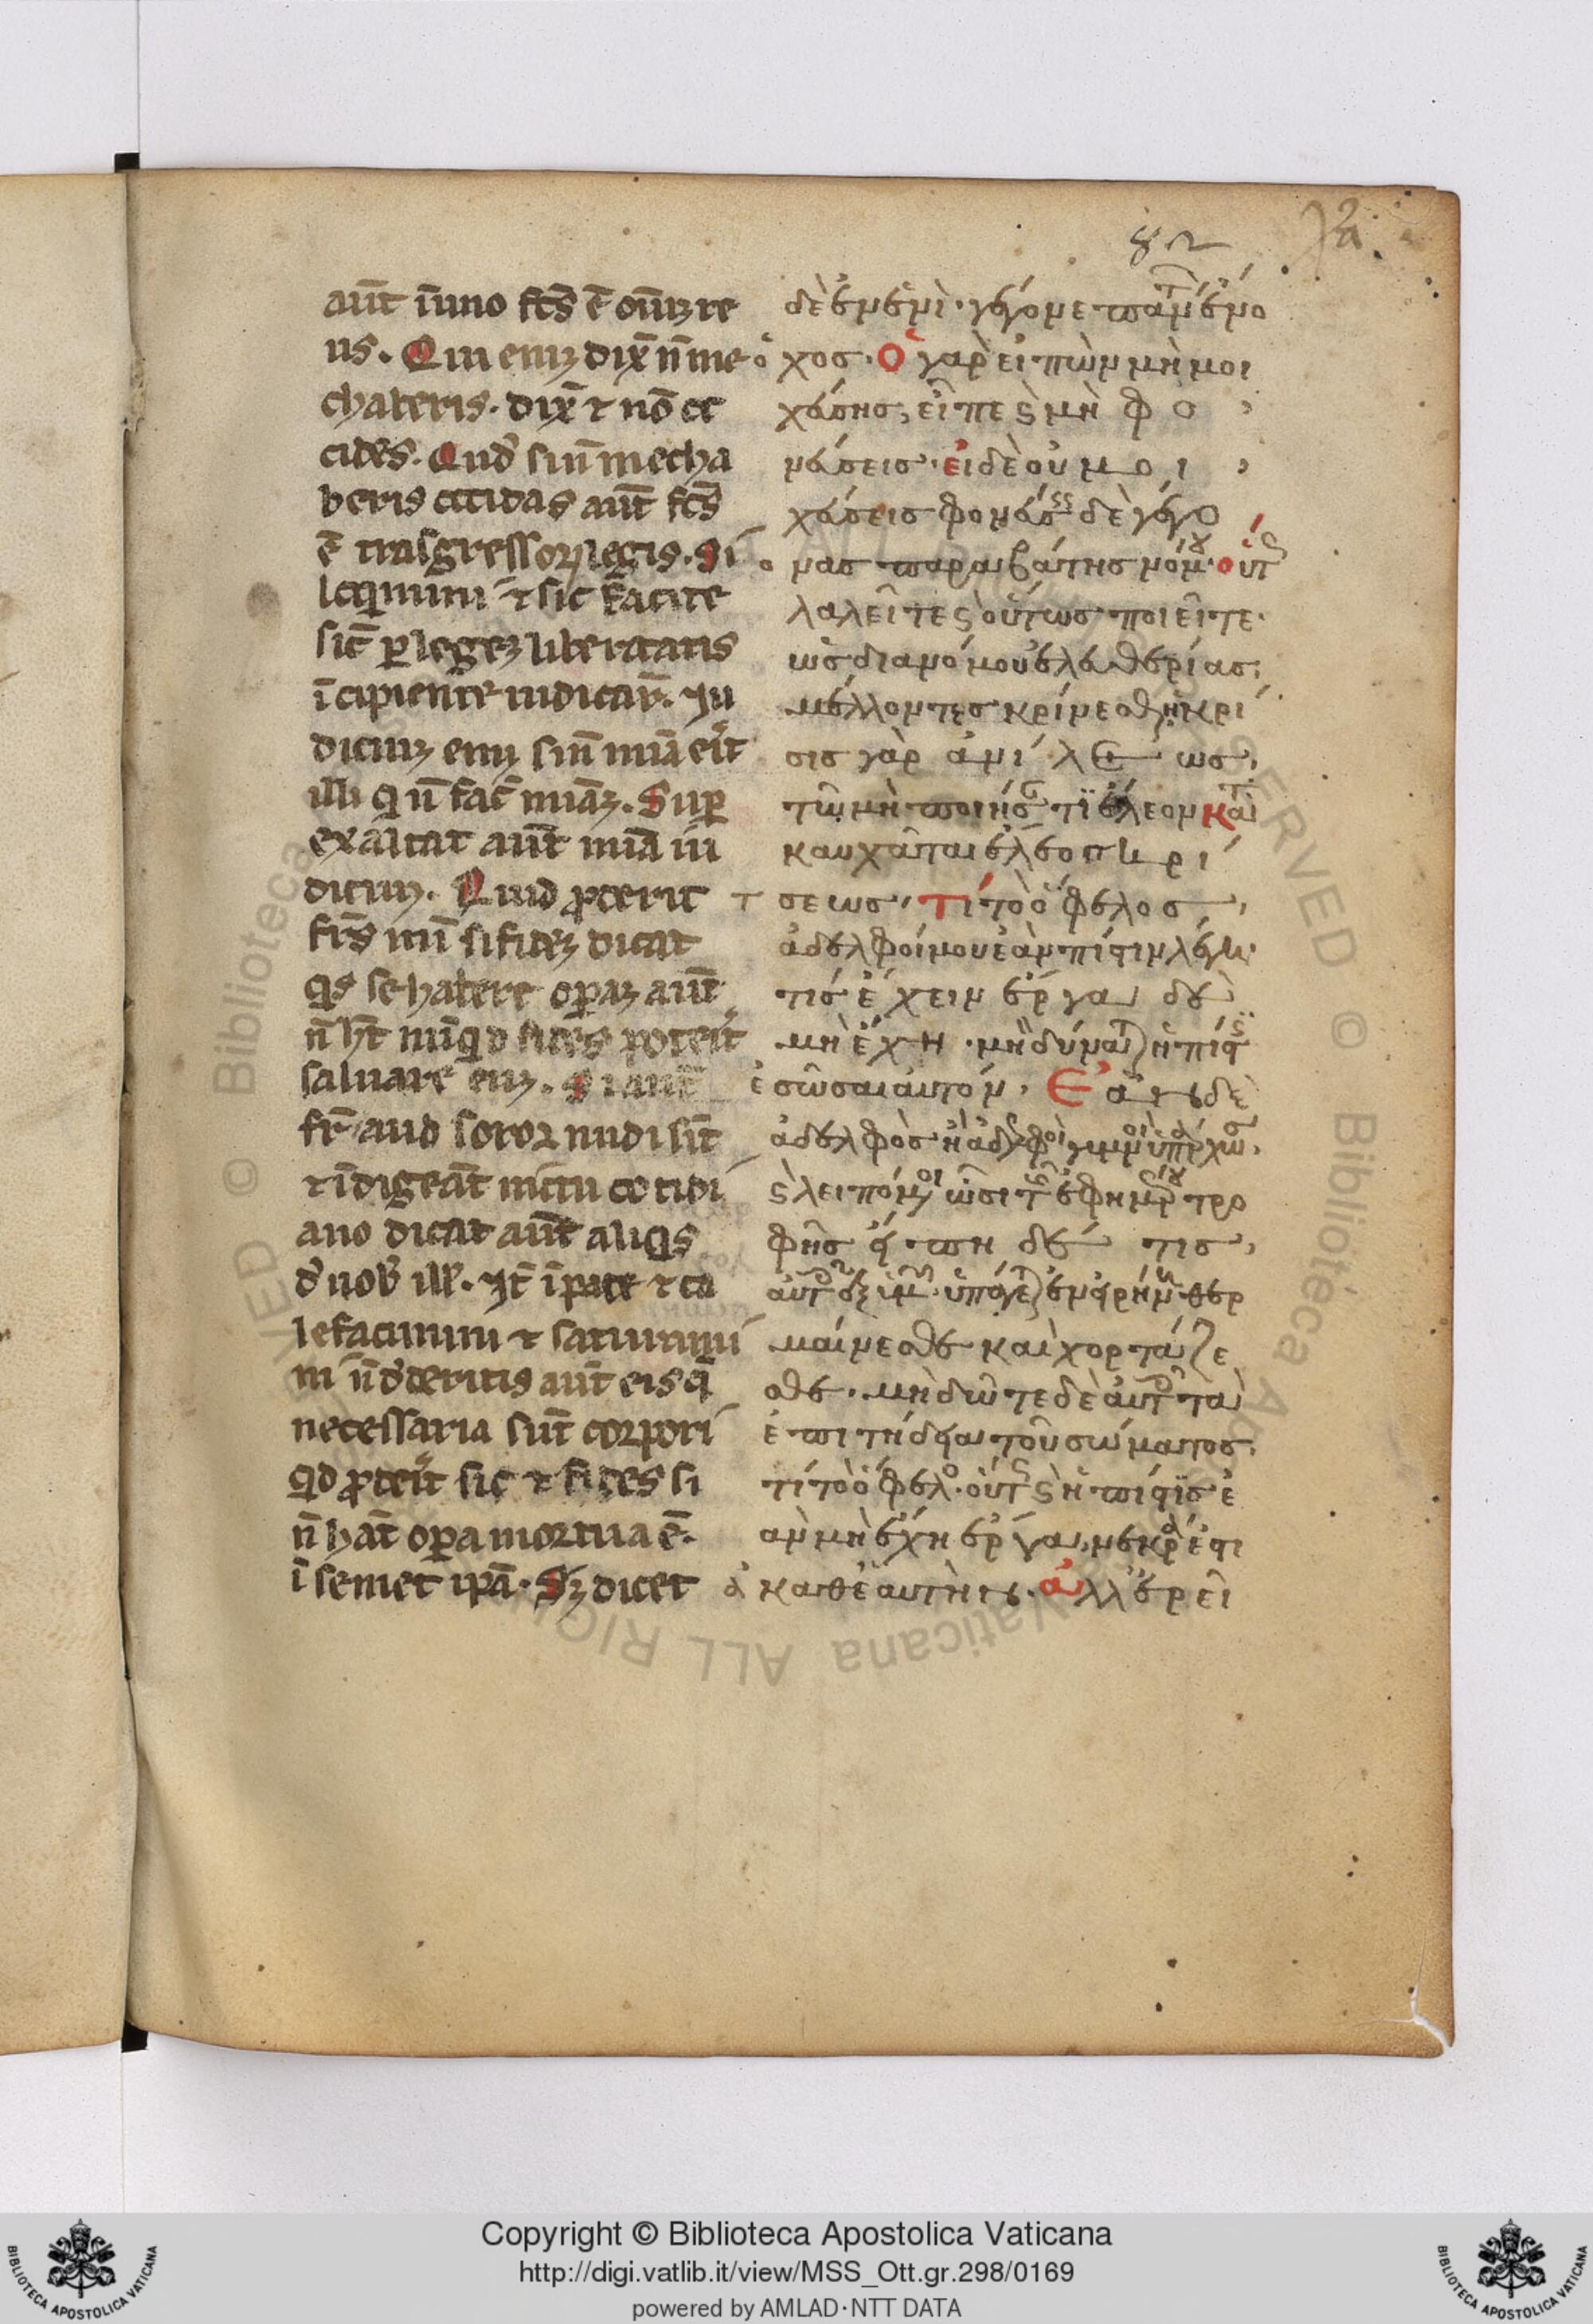 82
aut̄ ī uno fct̄s ē oīuȝ re
us. Qui enīȝ dix̄ n̄ me
chaberis. dix̄ ⁊ nō oc
cides. Qud̕ si n̄ mecha
beris occidas aut̄ fct̄s
ē trāsgressor legis. Si
loqmini ⁊ sic facite
sic̄ ꝑ legeȝ libertatis
īcipientes iudicari. Iu
diciuȝ eniȝ sin̄ mīa erit
illi q̄ n̄ fac̄ mīaȝ. Suꝑ
exaltat aut̄ mīa iu
dicuȝ. Quid ꝓderit
fr̄s mī si fideȝ dicat
qs se habere oꝑa aut̄
n̄ ht̄ nūqd fides poterit
saluare euȝ. Si aut̄
fr̄ aud soror nudi sīt
⁊ īdigeāt uictu cotidi
ano dicat aut̄ aliqs
d̕ uob̕ ill̕. It̄ ī pace ⁊ ca
lefacimini ⁊ saturimi
ni n̄ dederitis aut̄ eis q̄
necessaria sūt corpori
qd ꝓderit sic ⁊ fides si
n̄ hāt oꝑa mortua ē.
ī semet ipā. Sȝ dicet
δὲ ἐν ἑνὶ· γέγονε πάντ ἔνο
χος· Ὁ γὰρ εἰπὼν μὴ μοι
χεύσης, εἶπε ϛ μὴ φο
νεύσεις· εἰ δὲ οὐ μοι
χεύσεις φονεύσ δὲ γέγο
νας παραβάτης νόμου· οὕτ
λαλεῖτε ϛ οὕτως ποιεῖτε·
ὡς δια νόμου ἐλευθερίας,
μέλλοντες κρίνεσθ ἡ κρί
σις γὰρ ἀνίλεως,
τῶ μὴ ποιήσ τι ἔλεον κατ
καυχᾶται ἔλεος κρί
σεως, τί τὸ ὄφελος,
ἀδελφοί μου ἐὰν πίστιν λέγη·
τίς ἔχειν ἔργα δὲ
μὴ ἔχη· μὴ δύνατ ἡ πίστ
σῶσαι αὐτόν, Ἐὰν δὲ
ἀδελφὸς ἢ ἀδλφὴ γυμνοὶ ὑπάρχωσ,
ϛ λειπόμνοι ὦσι τῆς ἐφημέρου τρο
φῆς εἴπη δέ τις,
αὐτοῖς ἐξ ὑμῶν· ὑπάγετ ἐν εἰρήνη θερ
μαίνεσθε καὶ χορτάζε
σθε· μὴ δῶτε δὲ αὐτοῖς τὰ
ἐπιτήδεια τοῦ σώματος·
τί τὸ ὄφελο· οὕτως ϛ ἡ πίστις ἐ
ὰν μὴ ἔχη ἔργα, νεκρά ἐστι
καθ ἑαυτὴν· ἀλλ ἐρεῖ
Copyright © Biblioteca Apostolica Vaticana
http://digi.vatlib.it/view/MSS_Ott.gr.298/0169
powered by AMLAD·NTT DATA